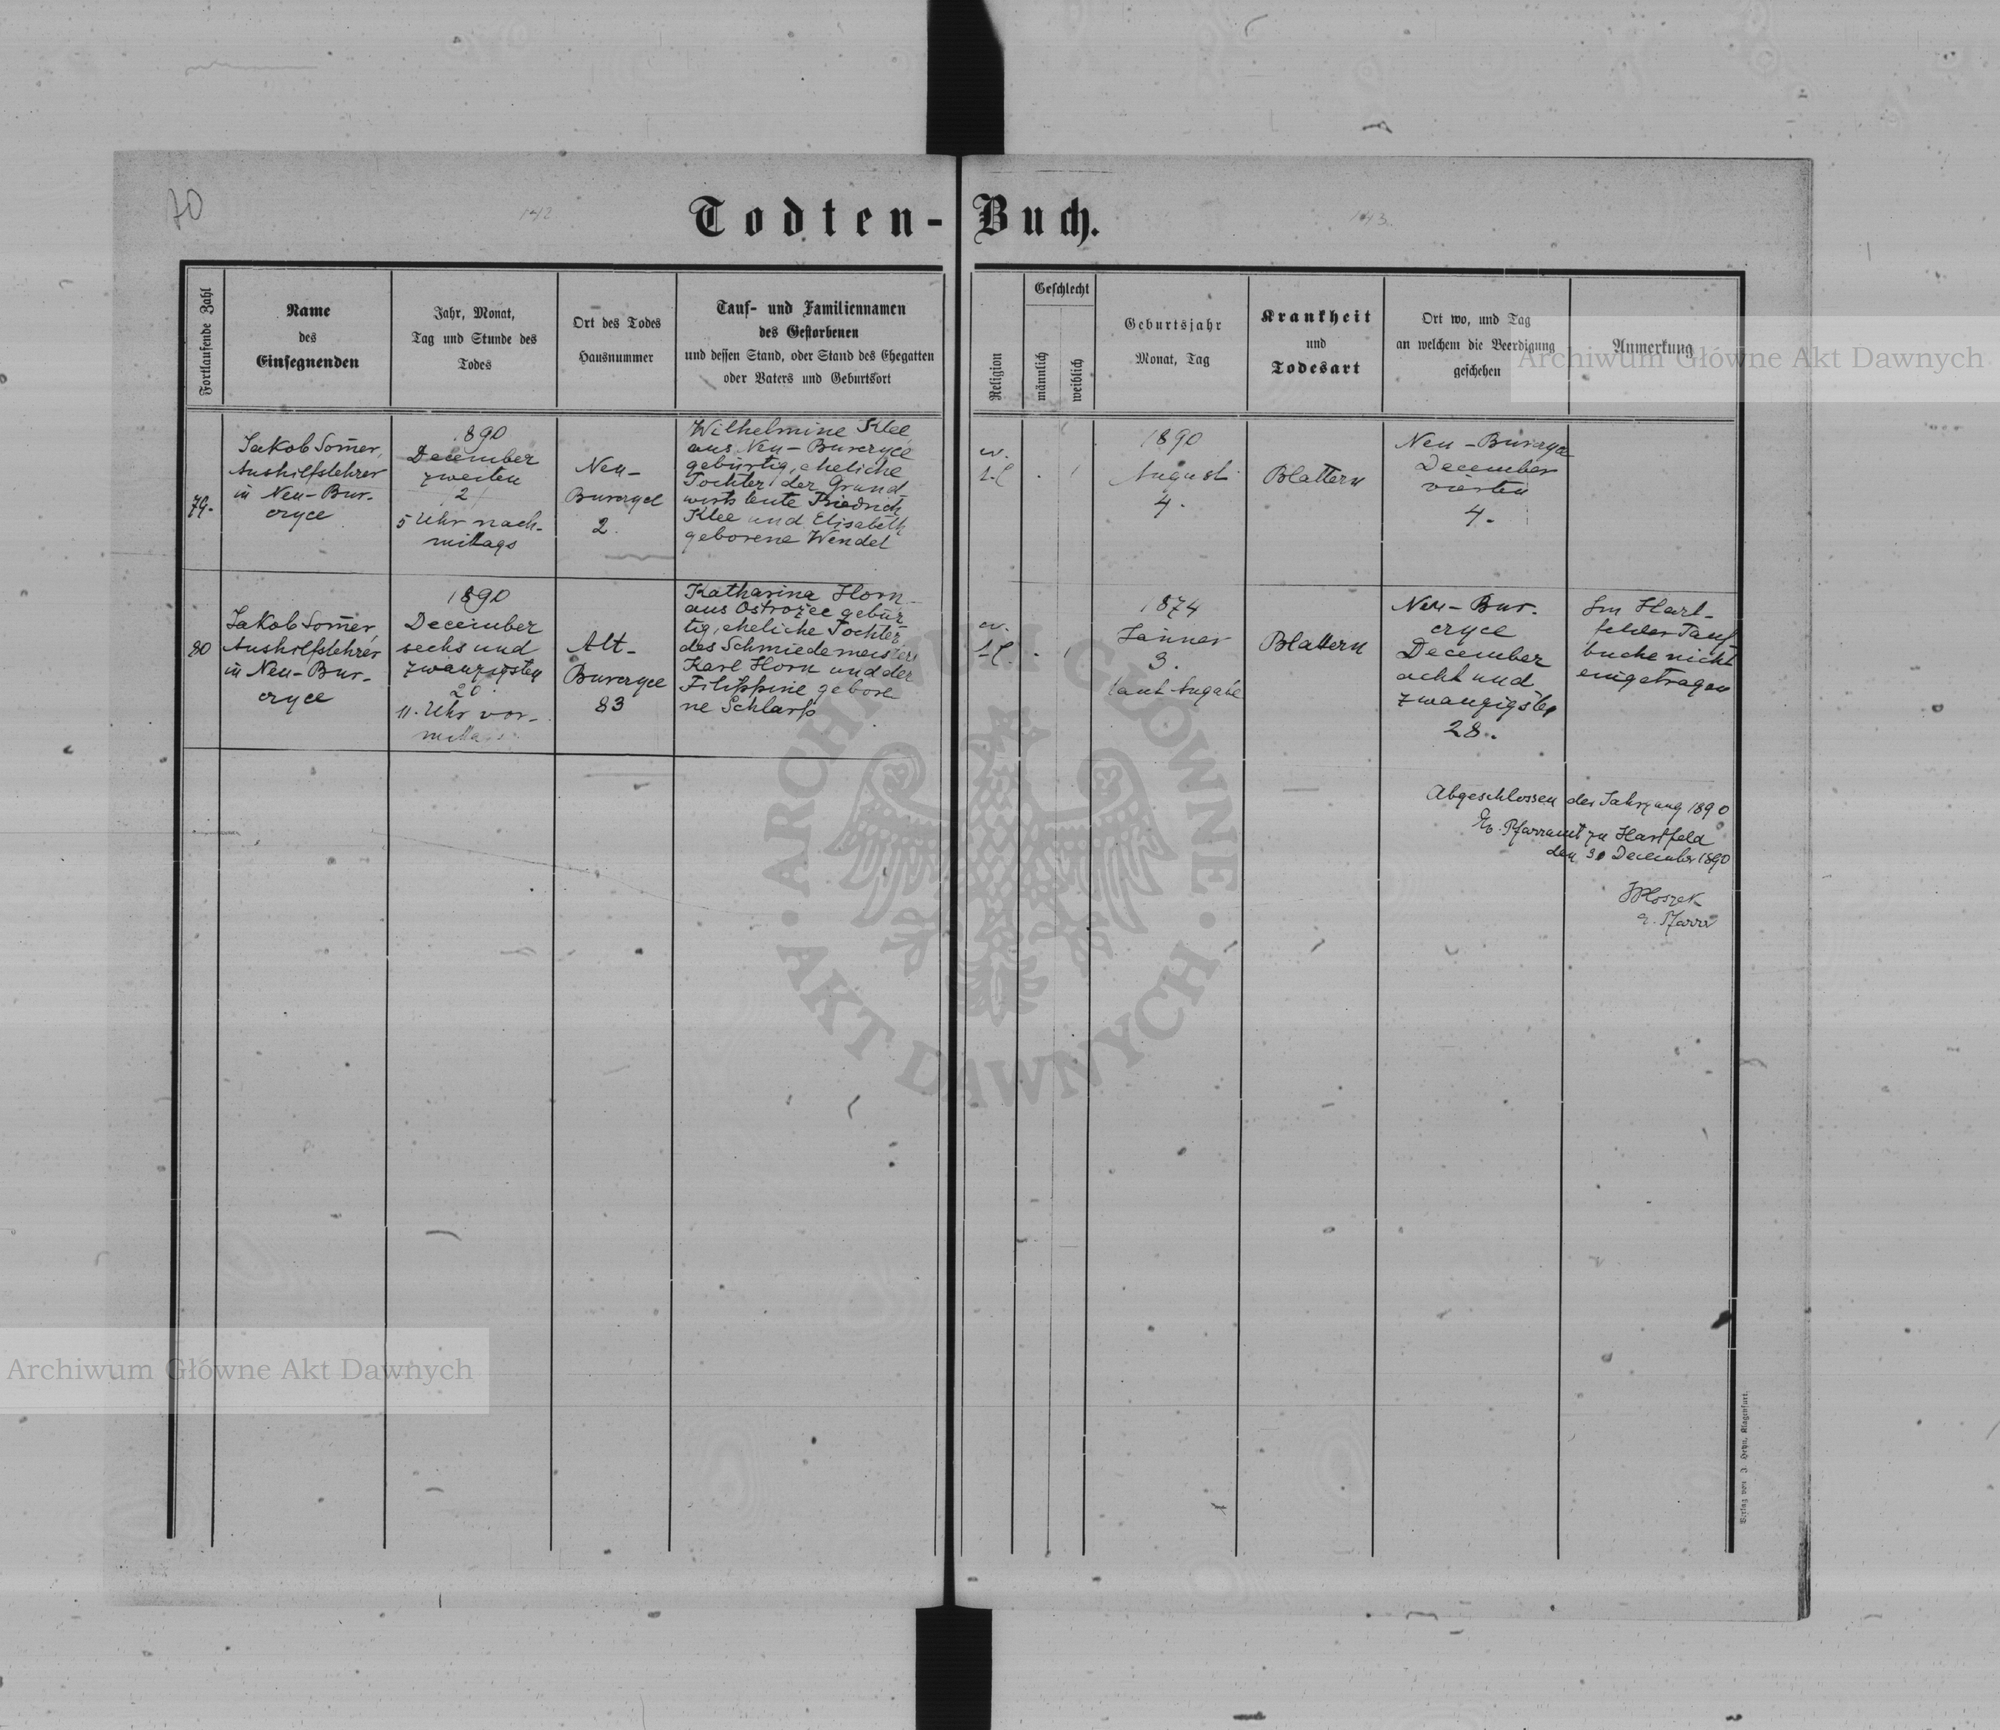 70
142
143
Todten-Buch.
Fortlaufende Zahl
Name
des
Einsegnenden
Jahr, Monat,
Tag und Stunde des
Todes
Ort des Todes
Hausnummer
Tauf- und Familiennamen
des Gestorbenen
und dessen Stand, oder Stand des Ehegatten
oder Vaters und Geburtsort
Religion
Geschlecht
männlich
weiblich
Geburtsjahr
Monat, Tag
Krankheit
und
Todesart
Ort wo, und Tag
an welchem die Beerdigung
geschehen
Anmerkung
79.
Jakob Som̄er,
Aushilfslehrer
in Neu-Bur-
czyce
1890
December
zweiten
2
5 Uhr nach-
mittags
Neu-
Burczyce
2.
Wilhelmine Klee
aus Neu-Burczyce
gebürtig, eheliche
Tochter der Grund
wirtsleute Friedrich
Klee und Elisabeth
geborene Wendel
ev.
1
1890
August
4.
Blattern
Neu-Burczyce
December
vierten
4.
80
Jakob Som̄er
Aushilfslehrer
in Neu-Bur-
czyce
1890
December
sechs und
zwanzigsten
11. Uhr vor-
Alt-
Burczyce
83
Katharina Horn
aus Ostrożec gebür-
tig, eheliche Tochter
des Schmiedemeisters
Karl Horn und der
Filippine gebore
ne Schlarp
ev.
1
1874
Jänner
3.
laut Angabe
Blattern
Neu-Bur-
czyce
December
acht und
zwanzigsten
28.
Im Hart-
felder Tauf
buche nicht
eingetragen
Abgeschlossen der Jahrgang 1890
Ev. Pfarramt zu Hartfeld
den 31 December 1890
e. Pfarrer
Verlag von J. Heyn, Klagenfurt.
Archiwum Główne Akt Dawnych
ARCHIWUM GŁÓWNE
· AKT DAWNYCH ·
Archiwum Główne Akt Dawnych